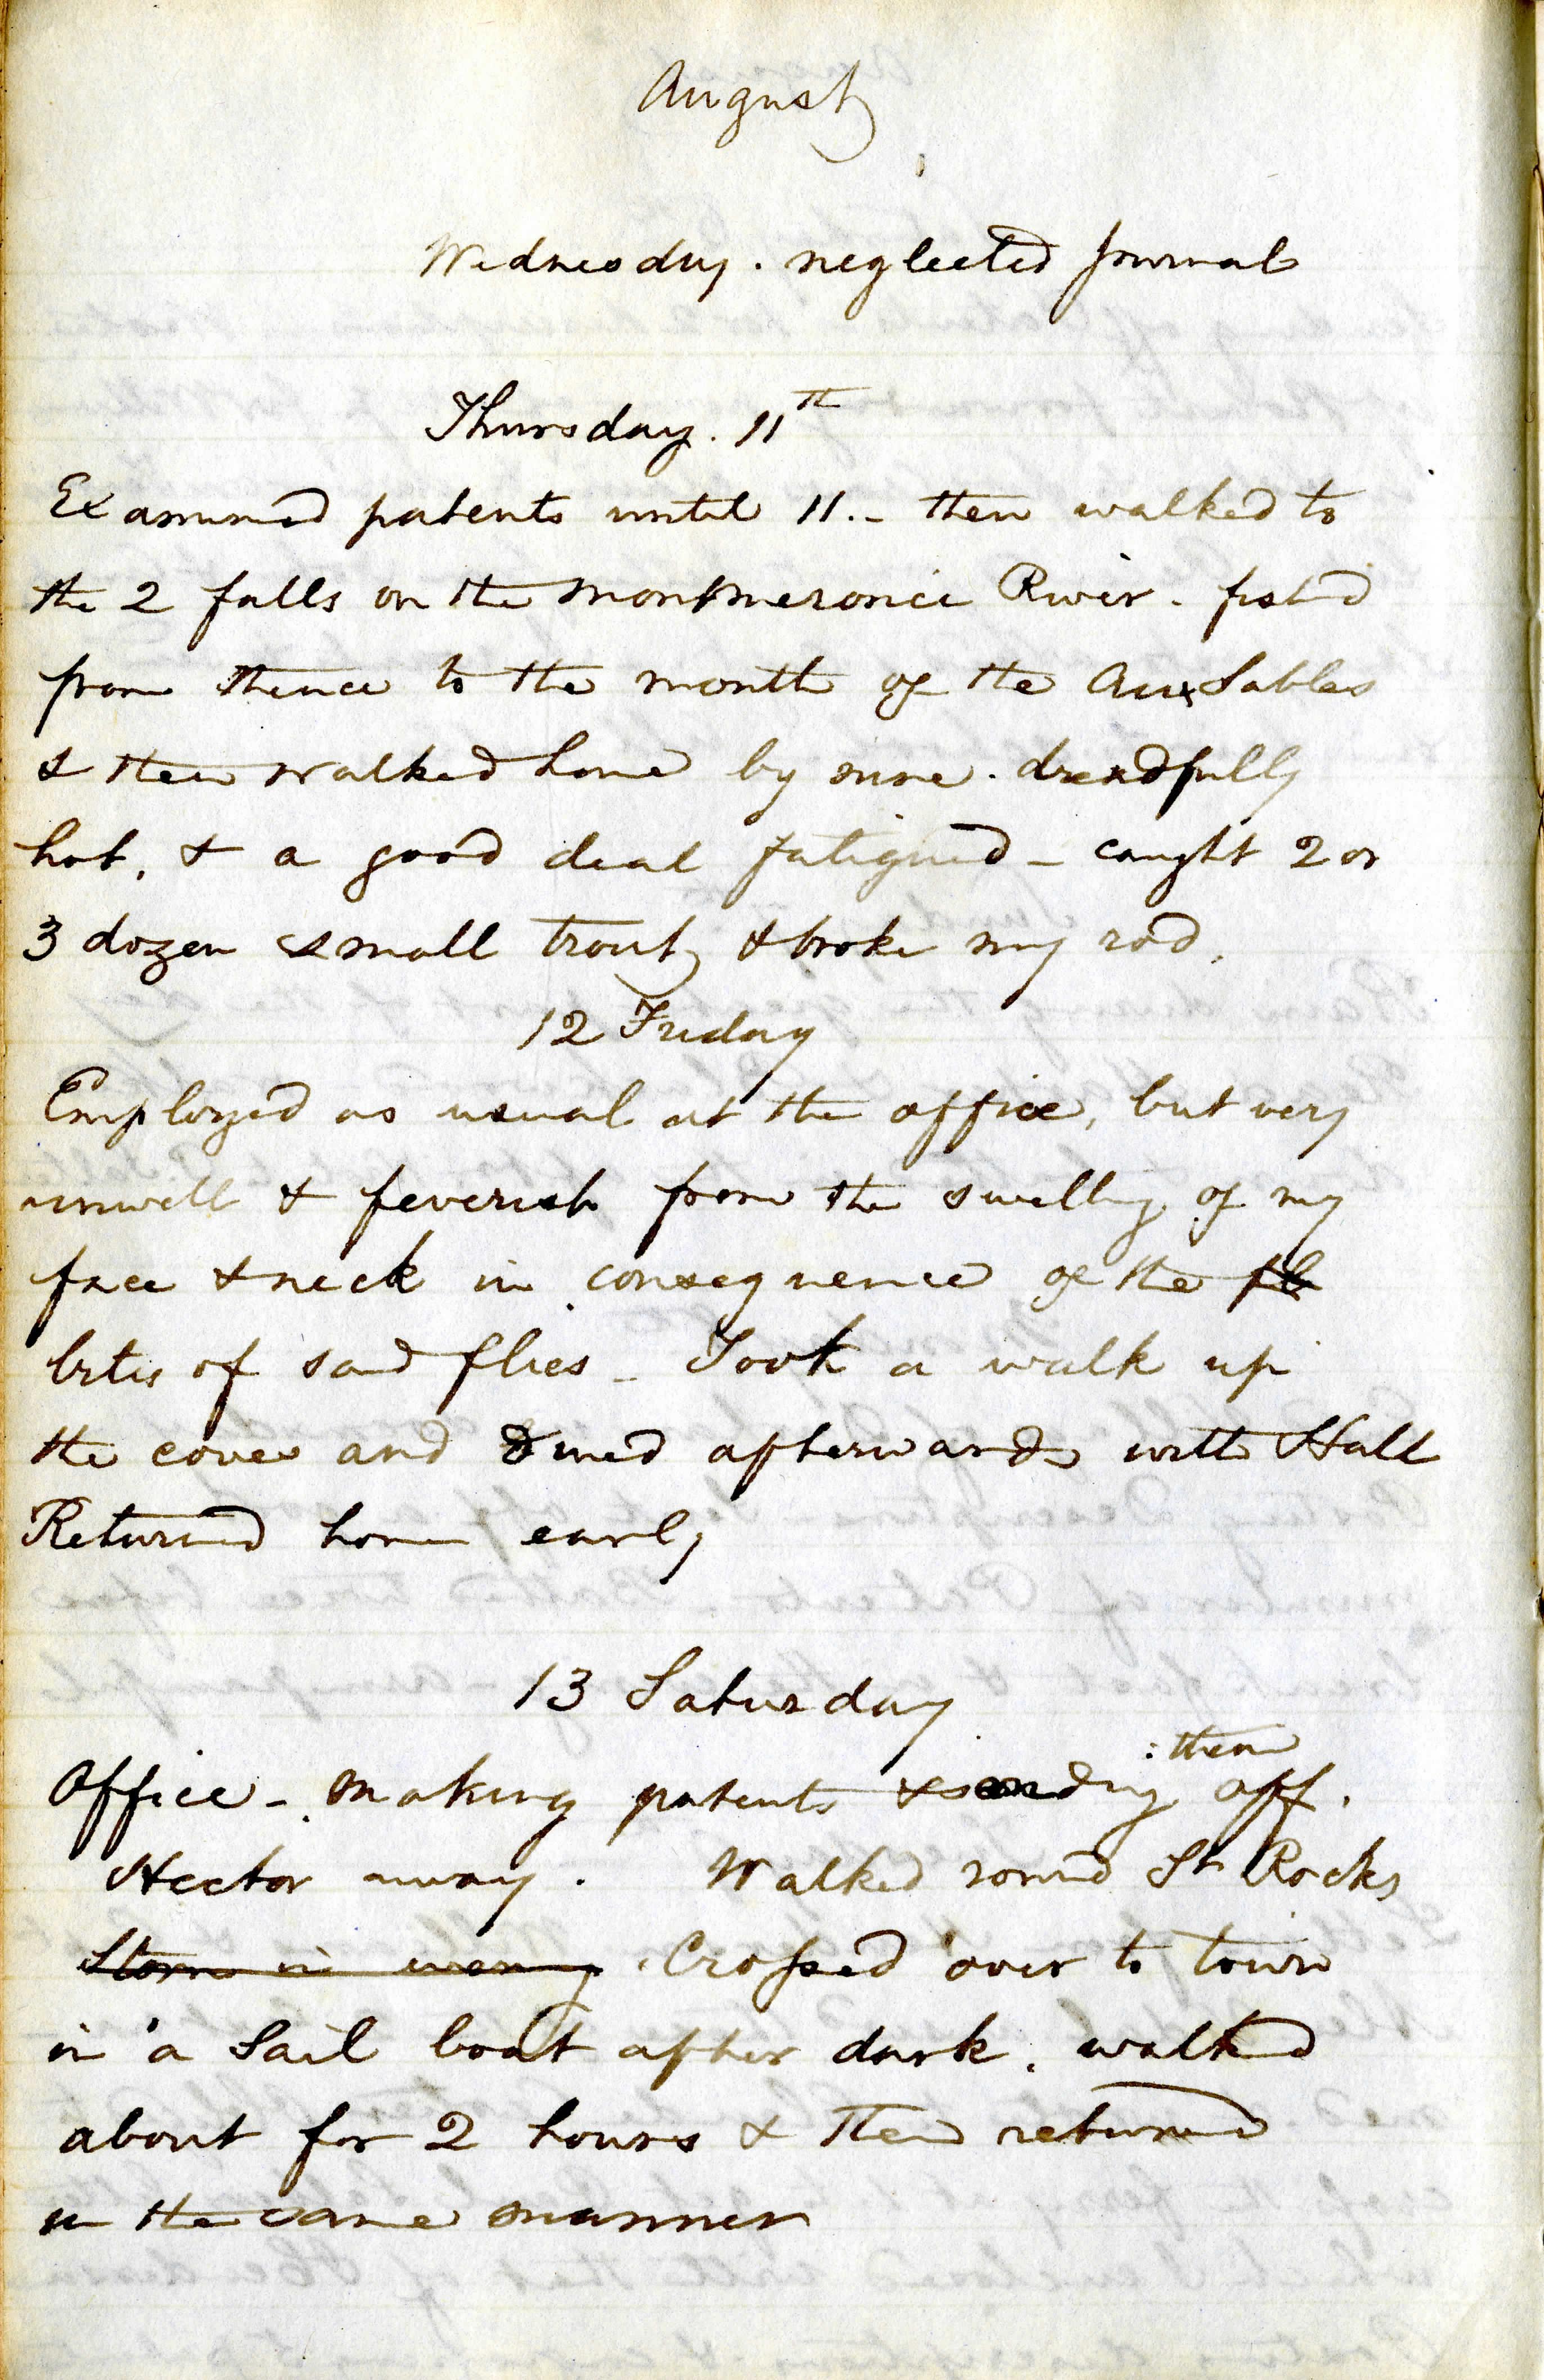 August
Wednesday. neglected journal
Thursday. 11th
Examined patents until 11.- then walked to
the 2 falls on the Montmeronci River. fish'd
from thence to the mouth of the Aux Sables
& then walked home by nine. dreadfully
hot, & a good deal fatigued - caught 2 or
3 dozen small trout & broke my rod.
12 Friday
Employed as usual at the office, but very
unwell & feverish from the swelling of my
face & neck in consequence of the
bites of sand flies - Took a walk up
the cove and dined afterwards with Hall
Returned home early
13 Saturday
: them
Office - making patents & sending off.
Hector away. Walked round St Rocks
Storm in evening. Crossed over to town
in a Sail boat after dark. walked
about for 2 hours & then returned
in the same manner